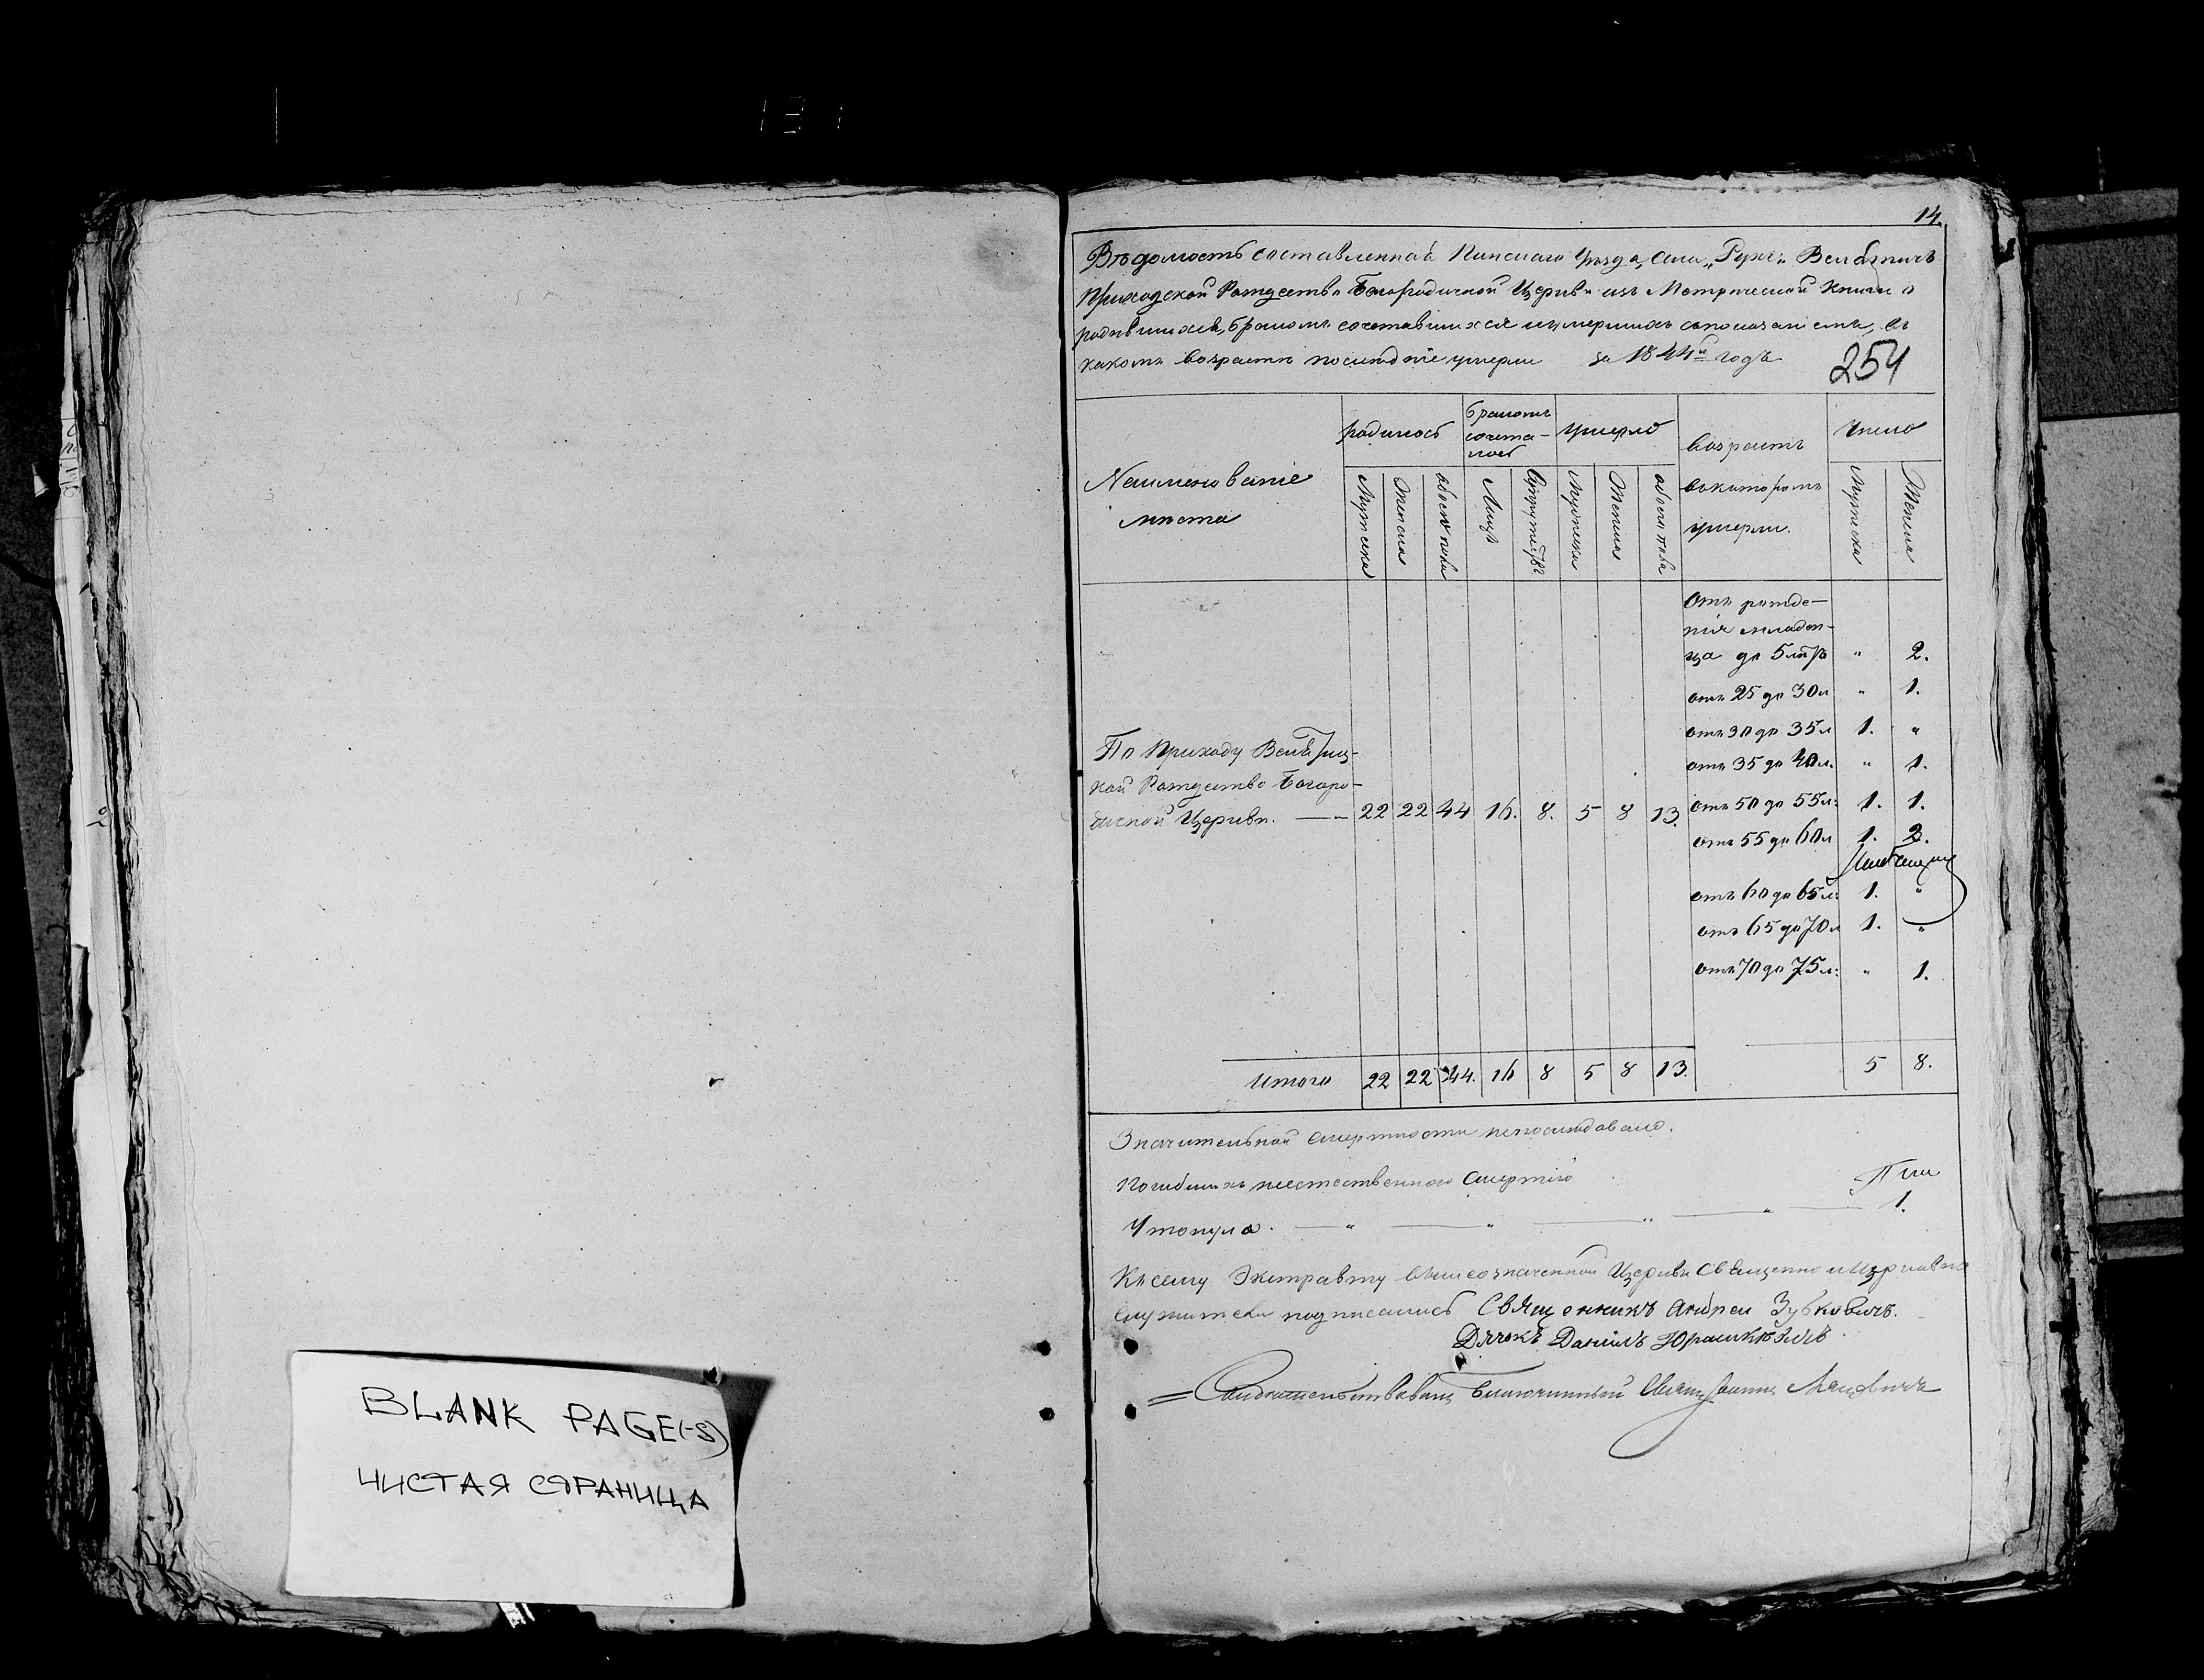 14.
Вѣдомость составленная Пинскаго уѣзда, села
Приходской Рождество Богородичной Церкви изъ Метрической книги о
родившихся, бракомъ сочетавшихся и умершихъ съ показаніемъ, въ
какомъ возрастѣ послѣдніе умерли за 1844й годъ
254
Наименованіе
мѣста
родилось
бракомъ
сочета-
лось
умерло
возрастъ
въ которомъ
умерли.
Число
Мужеска
Женска
обоего пола
Лицъ
Мужеска
Женска
обоего пола
Мужеска
Женска
Отъ рожде-
нія младен-
ца до 5 лѣтъ " 2.
отъ 25 до 30 л " 1.
отъ 30 до 35 л 1. "
отъ 35 до 40 л. " 1.
По Приходу
кой Рождество Богоро-
дичной Церкви. 22 22 44 16. 8. 5 8 13. отъ 50 до 55 л: 1. 1.
отъ 55 до 60 л 1. 2.
отъ 60 до 65 л: 1. "
отъ 65 до 70 л 1. "
отъ 70 до 75 л: " 1.
Итого 22 22 44. 16 8 5 8 13. 5 8.
Значительной смертности непослѣдовало.
Погибшихъ неестественною смертію
Утонула. — " — " — " — " — 1.
Къ сему Экстракту вышеозначенной Церкви Священно и Церковно
служители подписались Священникъ Андрей Зубковичъ.
Дячокъ Даніилъ Юрашкевичъ
Благочинный
BLANK PAGE(-S)
ЧИСТАЯ СТРАНИЦА